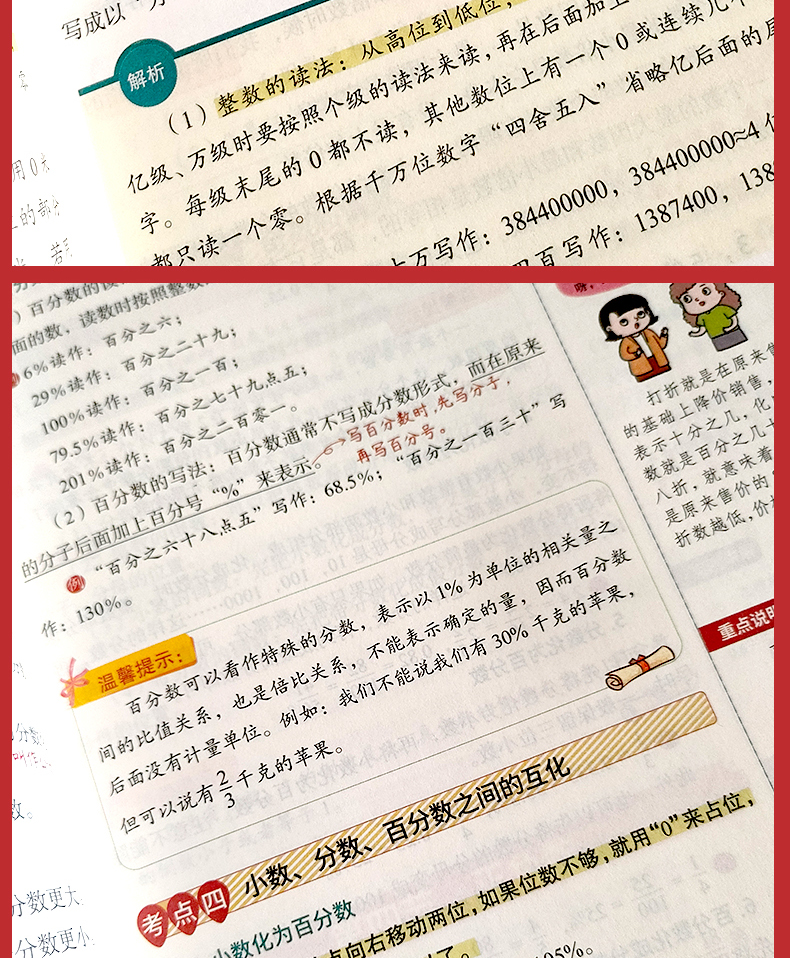 写成以“万
解析
（1）整数的读法：从高位到低位，
亿级、万级时要按照个级的读法来读，再在后面加上
字。每级末尾的0都不读，其他数位上有一个0或连续几个
都只读一个零。根据千万位数字“四舍五入”省略亿后面的尾
万写作：384400000，384400000≈4亿
四百写作：1387400，138
用0来
的部分
面的数，读数时按照整数
6%读作：百分之六；
29%读作：百分之二十九；
100%读作：百分之一百；
79.5%读作：百分之七十九点五；
201%读作：百分之二百零一。
（2）百分数的写法：百分数通常不写成分数形式，而在原来
的分子后面加上百分号“%”来表示。
写百分数时，先写分子，
再写百分号。
例 “百分之六十八点五”写作：68.5%；“百分之一百三十”写
作：130%。
温馨提示：
百分数可以看作特殊的分数，表示以1%为单位的相关量之
间的比值关系，也是倍比关系，不能表示确定的量，因而百分数
后面没有计量单位。例如：我们不能说我们有30%千克的苹果，
但可以说有2/3千克的苹果。
考点四 小数、分数、百分数之间的互化
小数化为百分数
点向右移动两位，如果位数不够，就用“0”来占位，
105%。
打折就是在原来售
的基础上降价销售，
表示十分之几，化
数就是百分之几十
八折，就意味着
是原来售价的
折数越低，价
重点说明
数。
分数更大
分数更小